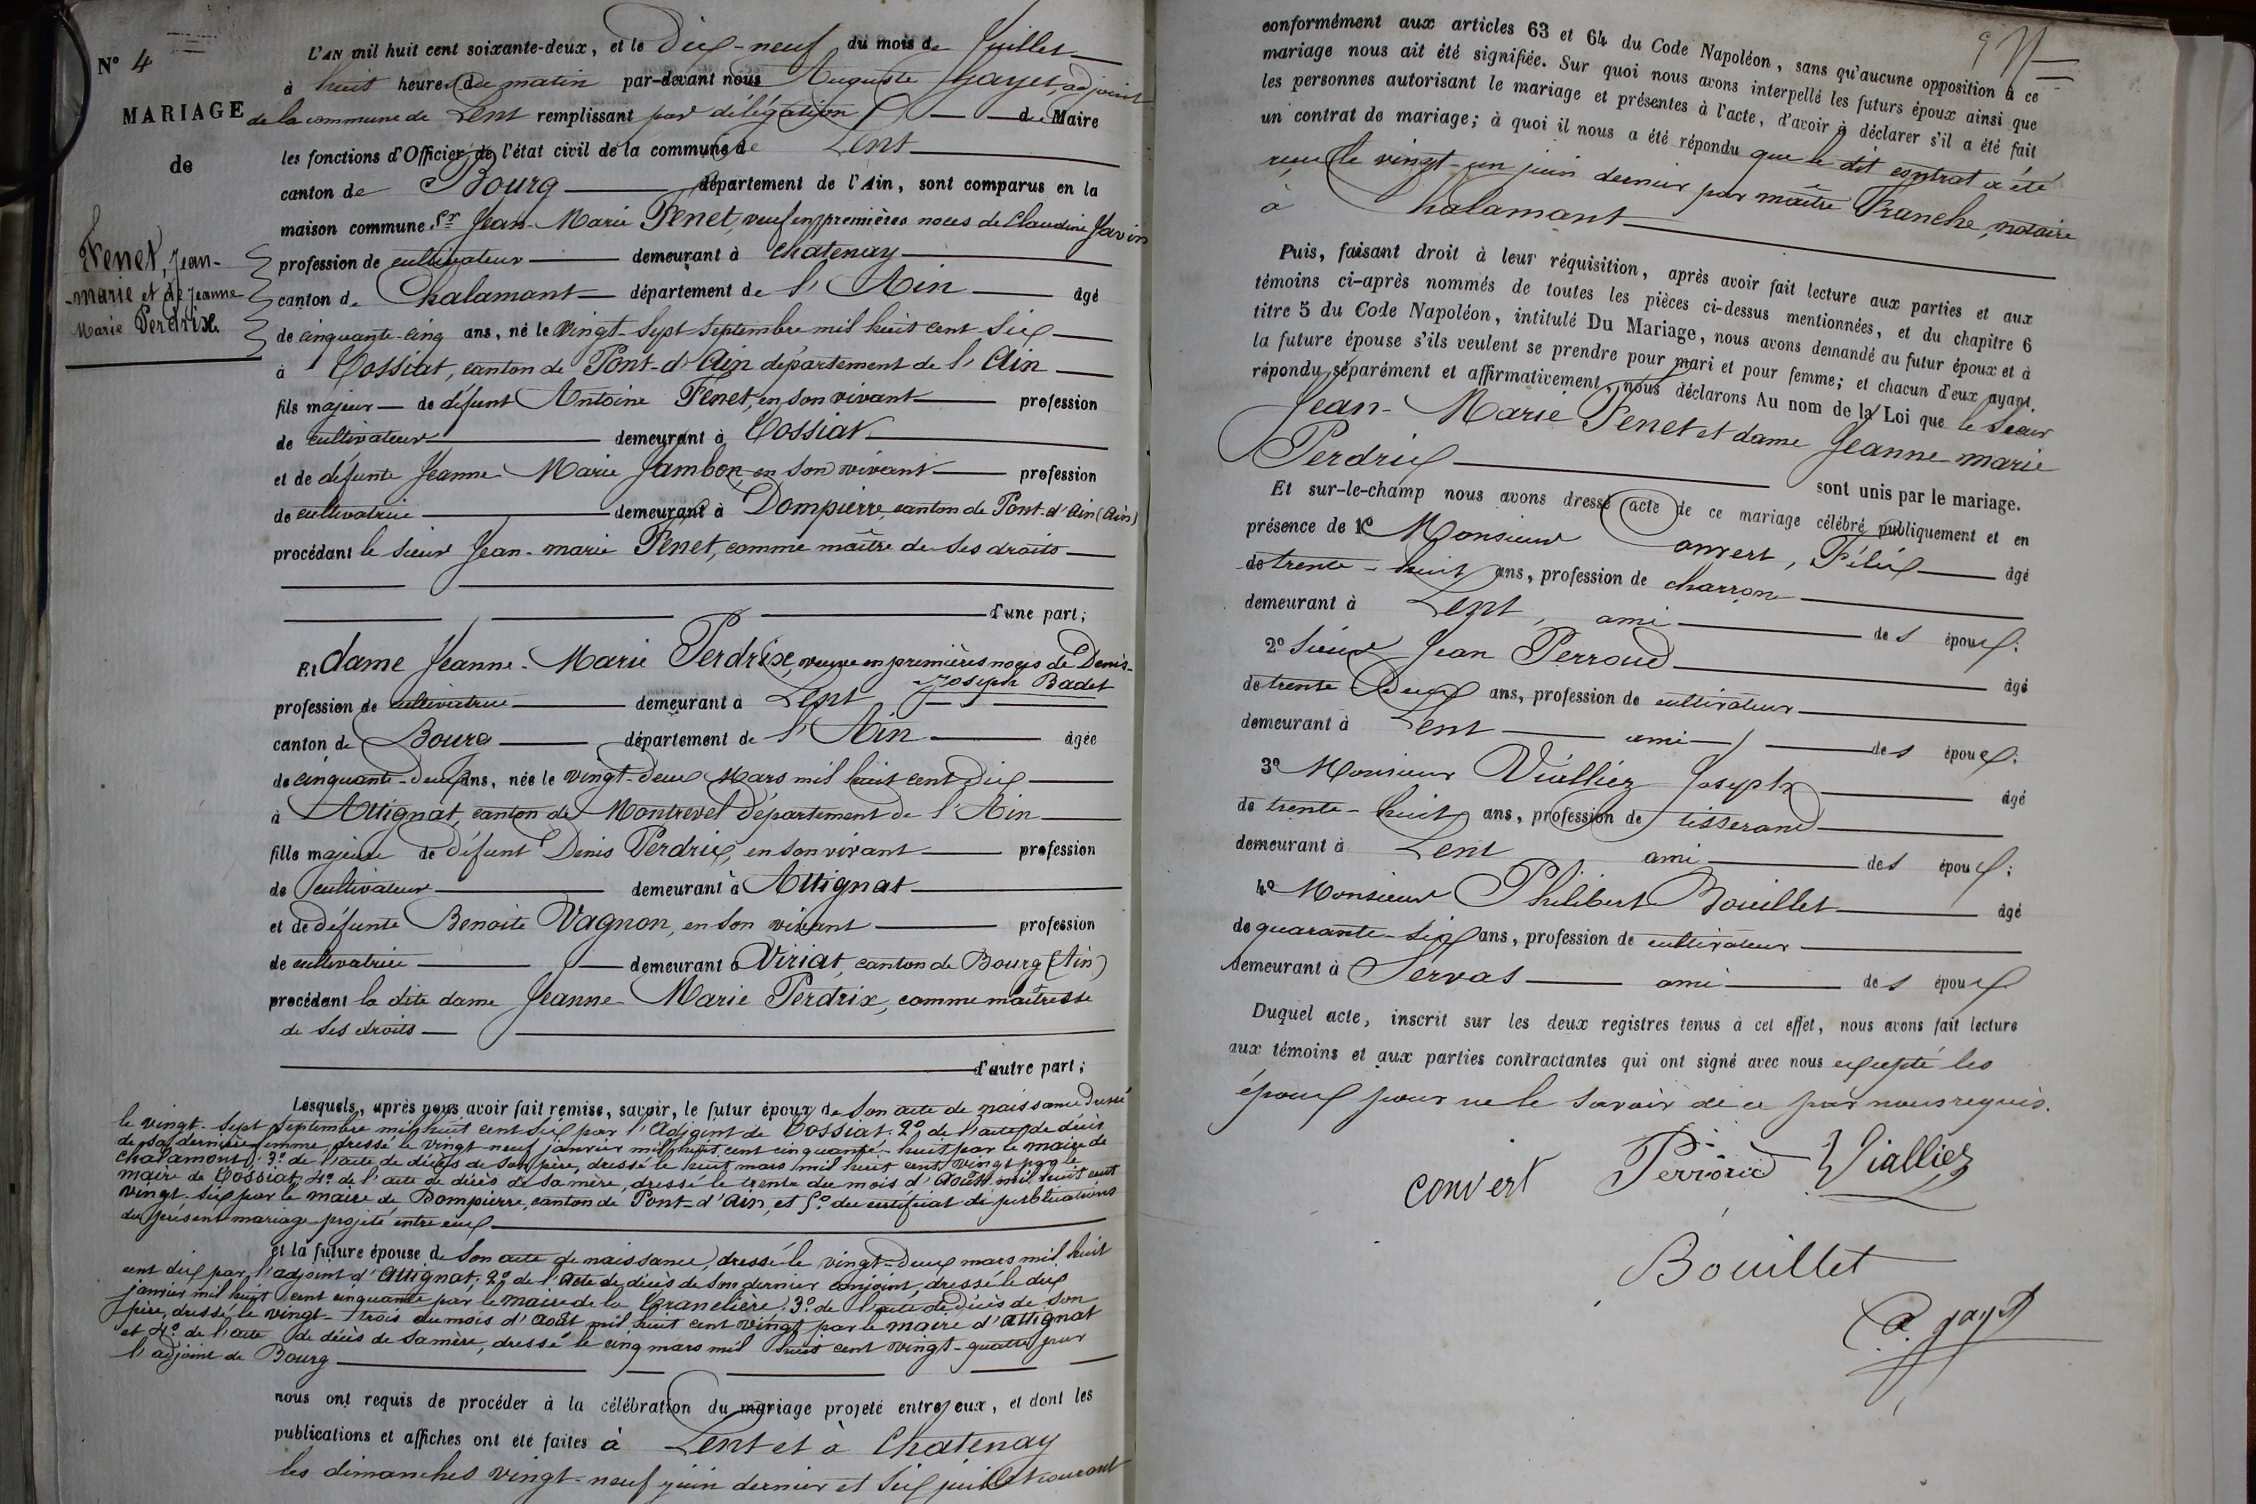 N° 4
MARIAGE
de
Fenet, Jean-
-marie et de Jeanne
Marie Perdrix.
L'AN mil huit cent soixante-deux, et le Dix-neuf du mois de Juillet
à huit heures du matin par-devant nous Auguste Gayet, adjoint
de la commune de Lent remplissant par délégation de Maire
les fonctions d'Officier de l'état civil de la commune de Lent
canton de Bourg département de l'Ain, sont comparus en la
maison commune Sr Jean-Marie Fenet, veuf en premières noces de Claudine Javin
profession de cultivateur demeurant à Chatenay
canton de Chalamont département de l'Ain âgé
de cinquante-cinq ans, né le vingt-sept Septembre mil huit cent six
à Tossiat, canton de Pont-d'Ain département de l'Ain
fils majeur de défunt Antoine Fenet, en son vivant profession
de cultivateur demeurant à Tossiat
et de défunte Jeanne Marie Jambon en son vivant profession
de cultivatrice demeurant à Dompierre, canton de Pont-d'Ain (Ain)
procédant le sieur Jean-marie Fenet, comme maître de ses droits
d'une part;
Et dame Jeanne-Marie Perdrix, veuve en premières noces de Denis-
Joseph Badet
profession de cultivatrice demeurant à Lent
canton de Bourg département de l'Ain âgée
de cinquante-deux ans, née le vingt-deux Mars mil huit cent dix
à Attignat, canton de Montrevel département de l'Ain
fille majeure de défunt Denis Perdrix, en son vivant profession
de cultivateur demeurant à Attignat
et de défunte Benoite Vagnon, en son vivant profession
de cultivatrice demeurant à Viriat, canton de Bourg (Ain)
procédant la dite dame Jeanne-Marie Perdrix, comme maîtresse
de ses droits
d'autre part;
Lesquels, après nous avoir fait remise, savoir, le futur époux de Son acte de naissance dressé
le vingt-sept septembre mil huit cent six par l'Adjoint de Tossiat; 2° de l'acte de décès
de sa dernière femme dressé le vingt-neuf janvier mil huit cent cinquante-huit par le maire de
Chalamont; 3° de l'acte de décès de son père, dressé le huit mars mil huit cent vingt par le
maire de Tossiat; 4° de l'acte de décès de sa mère, dressé le trente du mois d'Août mil huit cent
vingt-six par le maire de Dompierre, canton de Pont-d'Ain, et 5° du certificat de publications
du présent mariage projeté entre eux
et la future épouse de Son acte de naissance, dressé le vingt-deux mars mil huit
cent dix par l'adjoint d'Attignat; 2° de l'Acte de décès de son dernier conjoint, dressé le dix
janvier mil huit cent cinquante par le maire de la Tranclière; 3° de l'acte de décès de son
père, dressé le vingt-trois du mois d'août mil huit cent vingt par le maire d'Attignat
et 4° de l'acte de décès de sa mère, dressé le cinq mars mil huit cent vingt-quatre par
l'adjoint de Bourg
nous ont requis de procéder à la célébration du mariage projeté entre eux, et dont les
publications et affiches ont été faites à Lent et à Chatenay
les dimanches vingt-neuf juin dernier et six juillet courant
conformément aux articles 63 et 64 du Code Napoléon, sans qu'aucune opposition à ce
mariage nous ait été signifiée. Sur quoi nous avons interpellé les futurs époux ainsi que
les personnes autorisant le mariage et présentes à l'acte, d'avoir à déclarer s'il a été fait
un contrat de mariage; à quoi il nous a été répondu que le dit contrat a été
reçu le vingt-un juin dernier par maître Franche, notaire
à Chalamont
Puis, faisant droit à leur réquisition, après avoir fait lecture aux parties et aux
témoins ci-après nommés de toutes les pièces ci-dessus mentionnées, et du chapitre 6
titre 5 du Code Napoléon, intitulé Du Mariage, nous avons demandé au futur époux et à
la future épouse s'ils veulent se prendre pour mari et pour femme; et chacun d'eux ayant
répondu séparément et affirmativement, nous déclarons Au nom de la Loi que le Sieur
Jean-Marie Fenet et dame Jeanne-marie
Perdrix
sont unis par le mariage.
Et sur-le-champ nous avons dressé acte de ce mariage célébré publiquement et en
présence de 1° Monsieur Convert, Félix âgé
de trente-huit ans, profession de charron
demeurant à Lent, ami des époux;
2° Sieur Jean Perroud âgé
de trente Deux ans, profession de cultivateur
demeurant à Lent ami des époux;
3° Monsieur Vialliez Joseph âgé
de trente-huit ans, profession de tisserand
demeurant à Lent ami des époux;
4° Monsieur Philibert Bouillet âgé
de quarante-six ans, profession de cultivateur
demeurant à Servas ami des époux
Duquel acte, inscrit sur les deux registres tenus à cet effet, nous avons fait lecture
aux témoins et aux parties contractantes qui ont signé avec nous excepté les
époux pour ne le savoir de ce par nous requis.
convert Perroud Vialliez
Bouillet
a. gayet